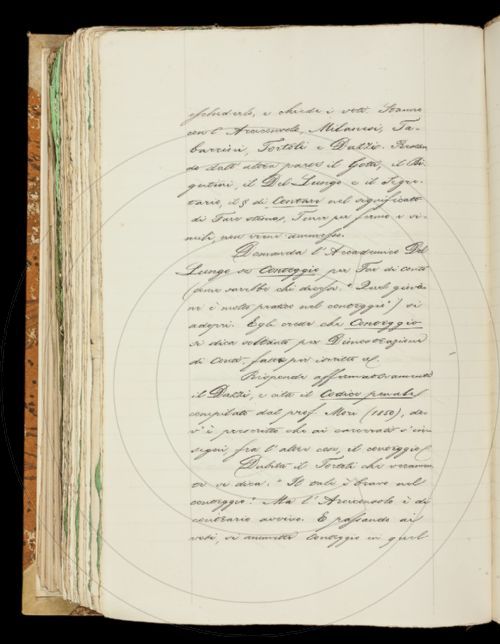 escluderlo, e chiede i voti. Stanno
con l'Arciconsolo, Milanesi, Ta-
barrini, Tortoli e Dazzi. Reston
do dall'altra parte il Gotti, il Bi-
gutini, il Del-Lungo e il Segre-
tario, il § di Contare nel significato
di Fare stima, Tener per fermo e si-
mili, non viene ammesso.
Domanda l'Accademico Del
Lungo se Conteggio per Far di conto
(come sarebbe chi dicesse: "Quel giova-
ne è molto pratico nel conteggio") si
adopri. Egli crede che Conteggio
si dica soltanto per Dimostrazione
di Conti, fatta per iscritto
Risponde affermativamente
il Dazzi, e cita il Codice penale
compilato dal prof. Mori (1850), do-
v'è prescritto che ai carcerati s'in-
segni, fra l'altre cose, il conteggio.
Dubita il Tortoli che veramen
te si dica: "Il tale è bravo nel
conteggio". Ma l'Arciconsolo è di
contrario avviso. E passando ai
voti, si ammette Conteggio in quel